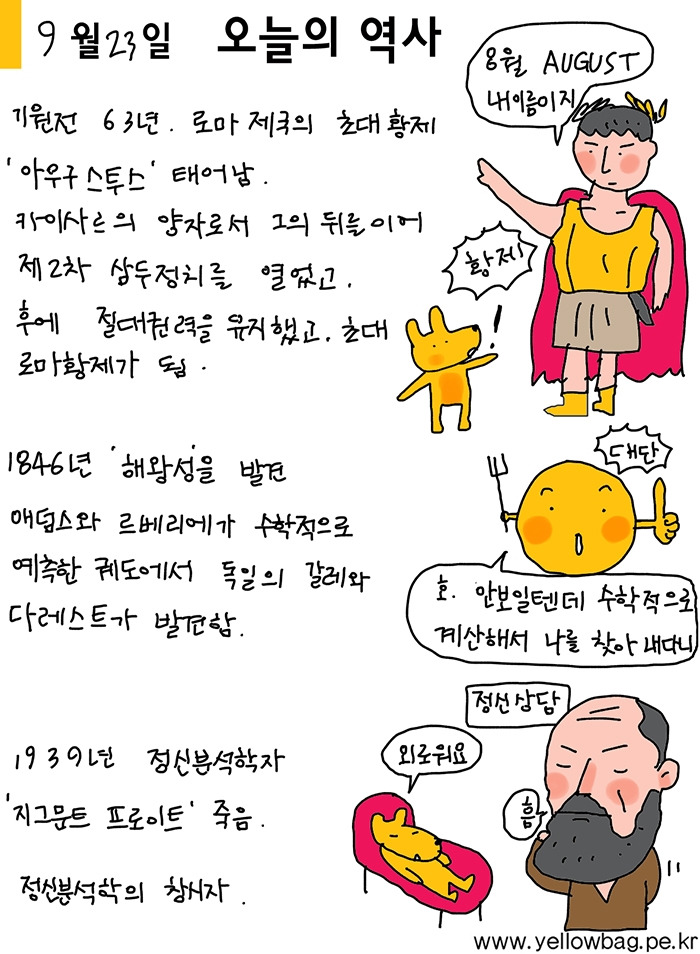 9월23일 오늘의 역사
8월 AUGUST
내이름이지
기원전 63년. 로마 제국의 초대황제
'아우구스투스' 태어남.
카이사르의 양자로서 그의 뒤를이어
제2차 삼두정치를 열었고.
후에 절대권력을 유지했고. 초대
로마황제가 됨.
황제!
!
1846년 '해왕성'을 발견
애덤스와 르베리에가 수학적으로
예측한 궤도에서 독일의 갈레와
다레스트가 발견함.
대단
호. 안보일텐데 수학적으로
계산해서 나를 찾아내다니
1939년 정신분석학자
'지그문트 프로이트' 죽음.
정신분석학의 창시자.
정신상담
외로워요
흠
www.yellowbag.pe.kr